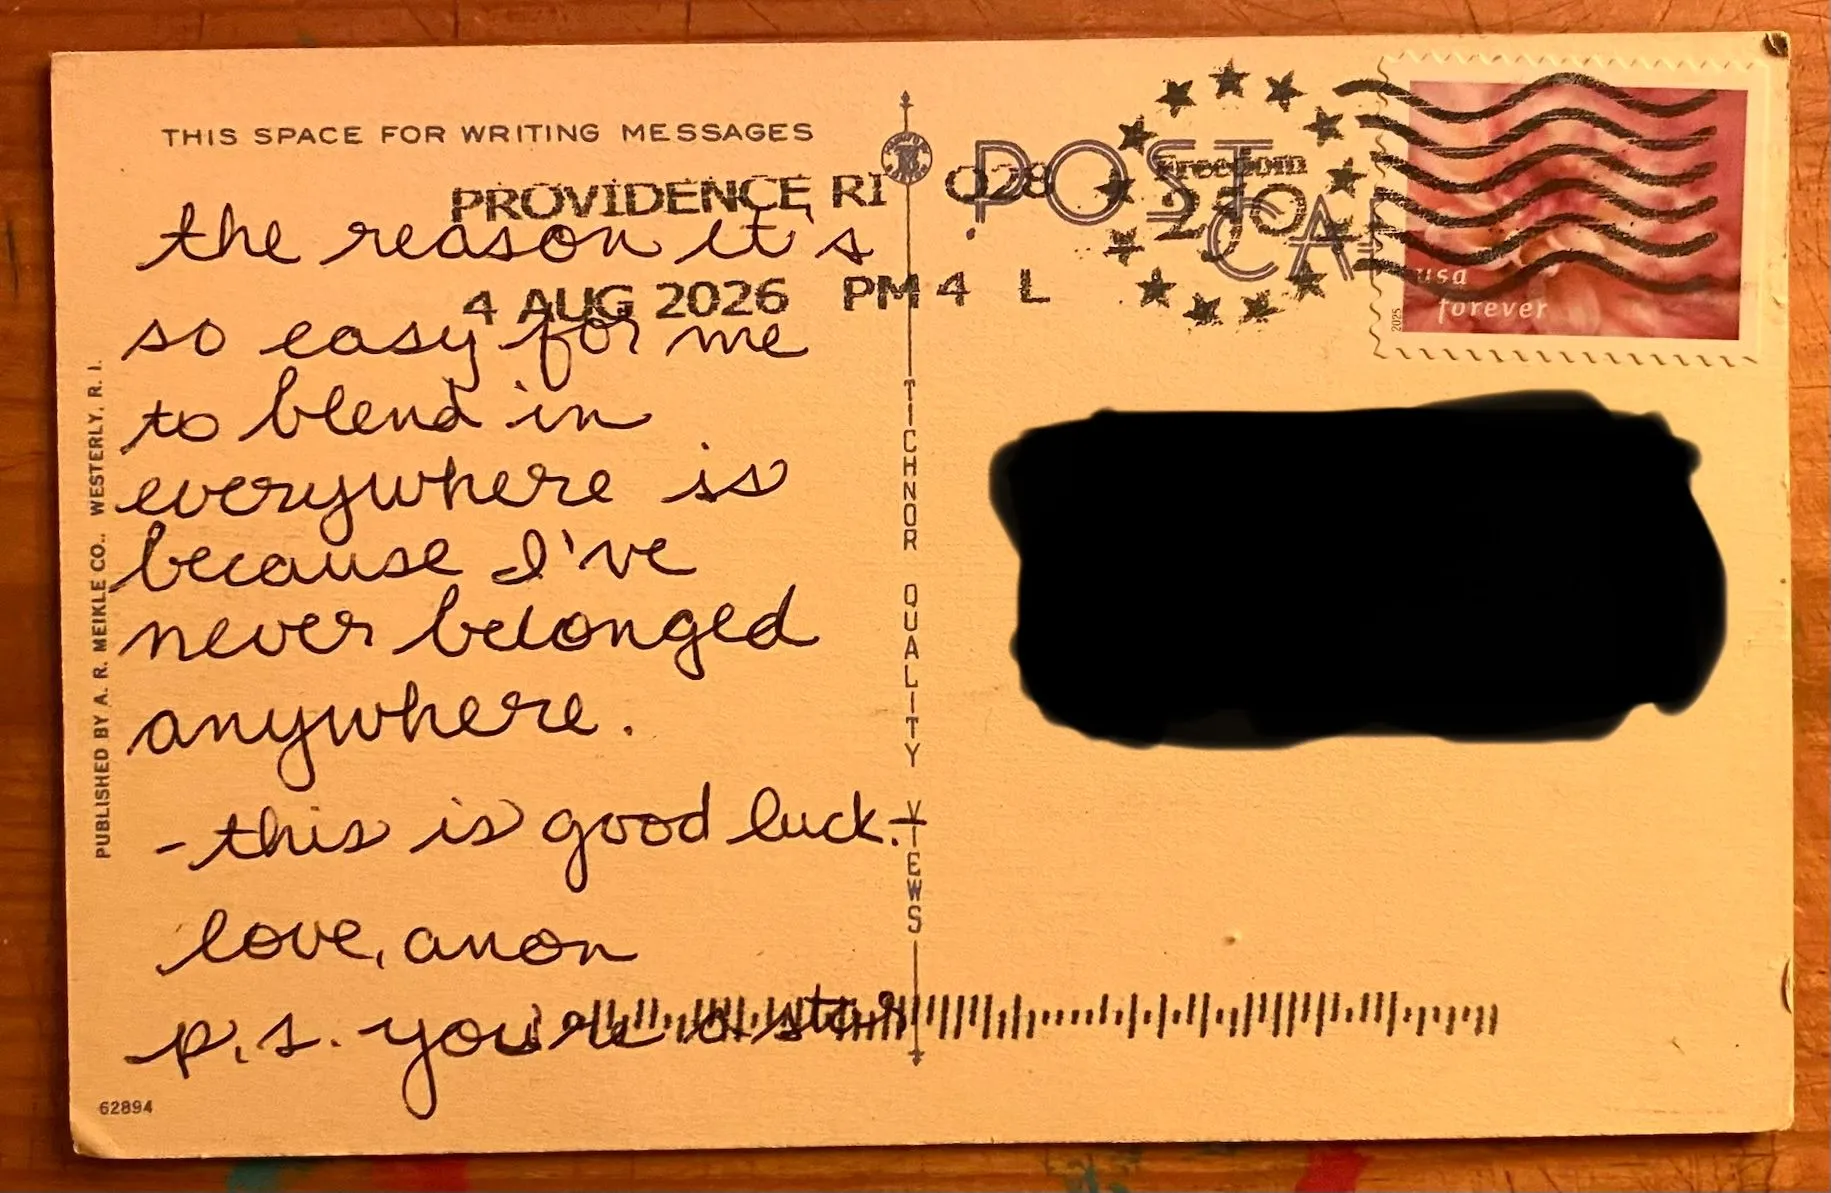 THIS SPACE FOR WRITING MESSAGES
POST CA
PROVIDENCE RI 028
4 AUG 2026 PM 4 L
Freedom
250
usa
forever
2025
the reason it's
so easy for me
to blend in
everywhere is
because I've
never belonged
anywhere.
- this is good luck. -
love, anon
p.s. you're a star
PUBLISHED BY A. R. MEIKLE CO., WESTERLY, R. I.
TICHNOR QUALITY VIEWS
62894